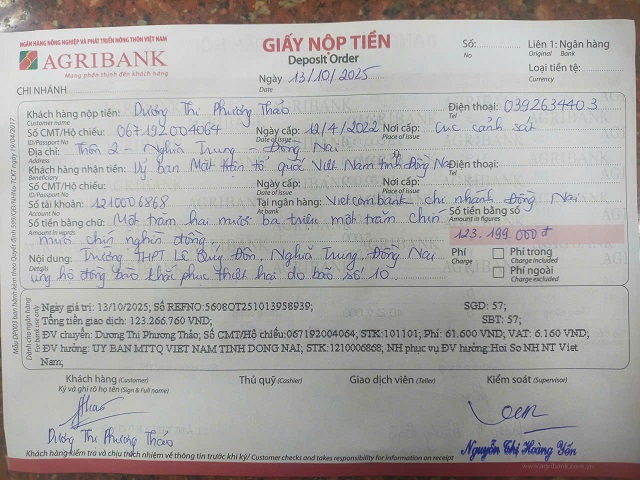 NGÂN HÀNG NÔNG NGHIỆP VÀ PHÁT TRIỂN NÔNG THÔN VIỆT NAM
AGRIBANK
Mang phồn thịnh đến khách hàng
GIẤY NỘP TIỀN
Deposit Order
Ngày 13/10/2025
Date
Số:
No
Liên 1: Ngân hàng
Original Bank
Loại tiền tệ:
Currency
CHI NHÁNH
Khách hàng nộp tiền: Dương Thị Phương Thảo Điện thoại: 0392634403
Customer name Tel
Số CMT/Hộ chiếu: 067192004064 Ngày cấp: 12/4/2022 Nơi cấp: Cục cảnh sát
ID/Passport No Date of issue Place of issue
Địa chỉ: Thôn 2 - Nghĩa Trung - Đồng Nai
Address
Khách hàng nhận tiền: Uỷ ban Mặt trận tổ quốc Việt Nam tỉnh Đồng Nai
Beneficiary
Số CMT/Hộ chiếu: Ngày cấp: Nơi cấp: Điện thoại:
ID/Passport No Date of issue Place of issue Tel
Số tài khoản: 1210006868 Tại ngân hàng: Vietcombank chi nhánh Đồng Nai
Account No At bank
Số tiền bằng chữ: Một trăm hai mươi ba triệu một trăm chín
Amount in words
mươi chín nghìn đồng.
Số tiền bằng số
Amount in figures
123.199.000đ
Nội dung: Trường THPT Lê Quý Đôn, Nghĩa Trung, Đồng Nai
Details
ủng hộ đồng bào khắc phục thiệt hại do bão số 10.
Phí
Charge
Phí trong
Charge included
Phí ngoài
Charge excluded
Ngày giá trị: 13/10/2025; Số REFNO:5608OT251013958939; SGD: 57;
Tổng tiền giao dịch: 123.266.760 VND; SBT: 57;
ĐV chuyển: Dương Thị Phương Thảo; Số CMT/Hộ chiếu:067192004064; STK:101101; Phí: 61.600 VND; VAT: 6.160 VND;
ĐV hưởng: UY BAN MTTQ VIET NAM TINH DONG NAI; STK:1210006868; NH phục vụ ĐV hưởng: Hoi So NH NT Viet
Nam;
Dành cho ngân hàng
For bank use only
Khách hàng (Customer) Thủ quỹ (Cashier) Giao dịch viên (Teller) Kiểm soát (Supervisor)
Ký và ghi rõ họ tên (Sign & Full name)
Thao
Dương Thị Phương Thảo
Nguyễn Thị Hoàng Yến
Khách hàng kiểm tra và chịu trách nhiệm về thông tin trước khi ký/ Customer checks and takes responsibility for information on receipt
www.agribank.com.vn